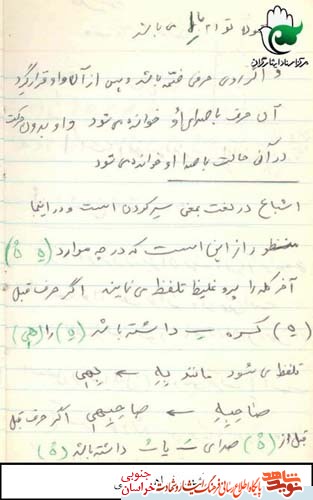 مرکز اسناد ایثارگران
می باشد
و اگر روی حرفی ضمّه باشد و پس از آن واو قرار گیرد
آن حرف با صدای اُو خوانده می شود و واو بدون حرکت
در آن حالت با صدا او خوانده می شود
اشباع در لغت بمعنی سیر کردن است و در اینجا
منظور از این است که در چه موارد (ـهِ هُ)
آخر کلمه را پر و غلیظ تلفظ می نمایند اگر حرف قبل
(ـهِ) کسره ـِ داشته باشد (ـهِ) را (هِی)
تلفظ می شود مانند بِهِ ← بِهِی
صاحِبِهِ ← صاحِبِهِی اگر حرف قبل
قبل از (هُ) صدای ـَ یا ـُ داشته باشد (هُ)
نوید شاهد
پایگاه اطلاع رسانی فرهنگ ایثار و شهادت
خراسان جنوبی